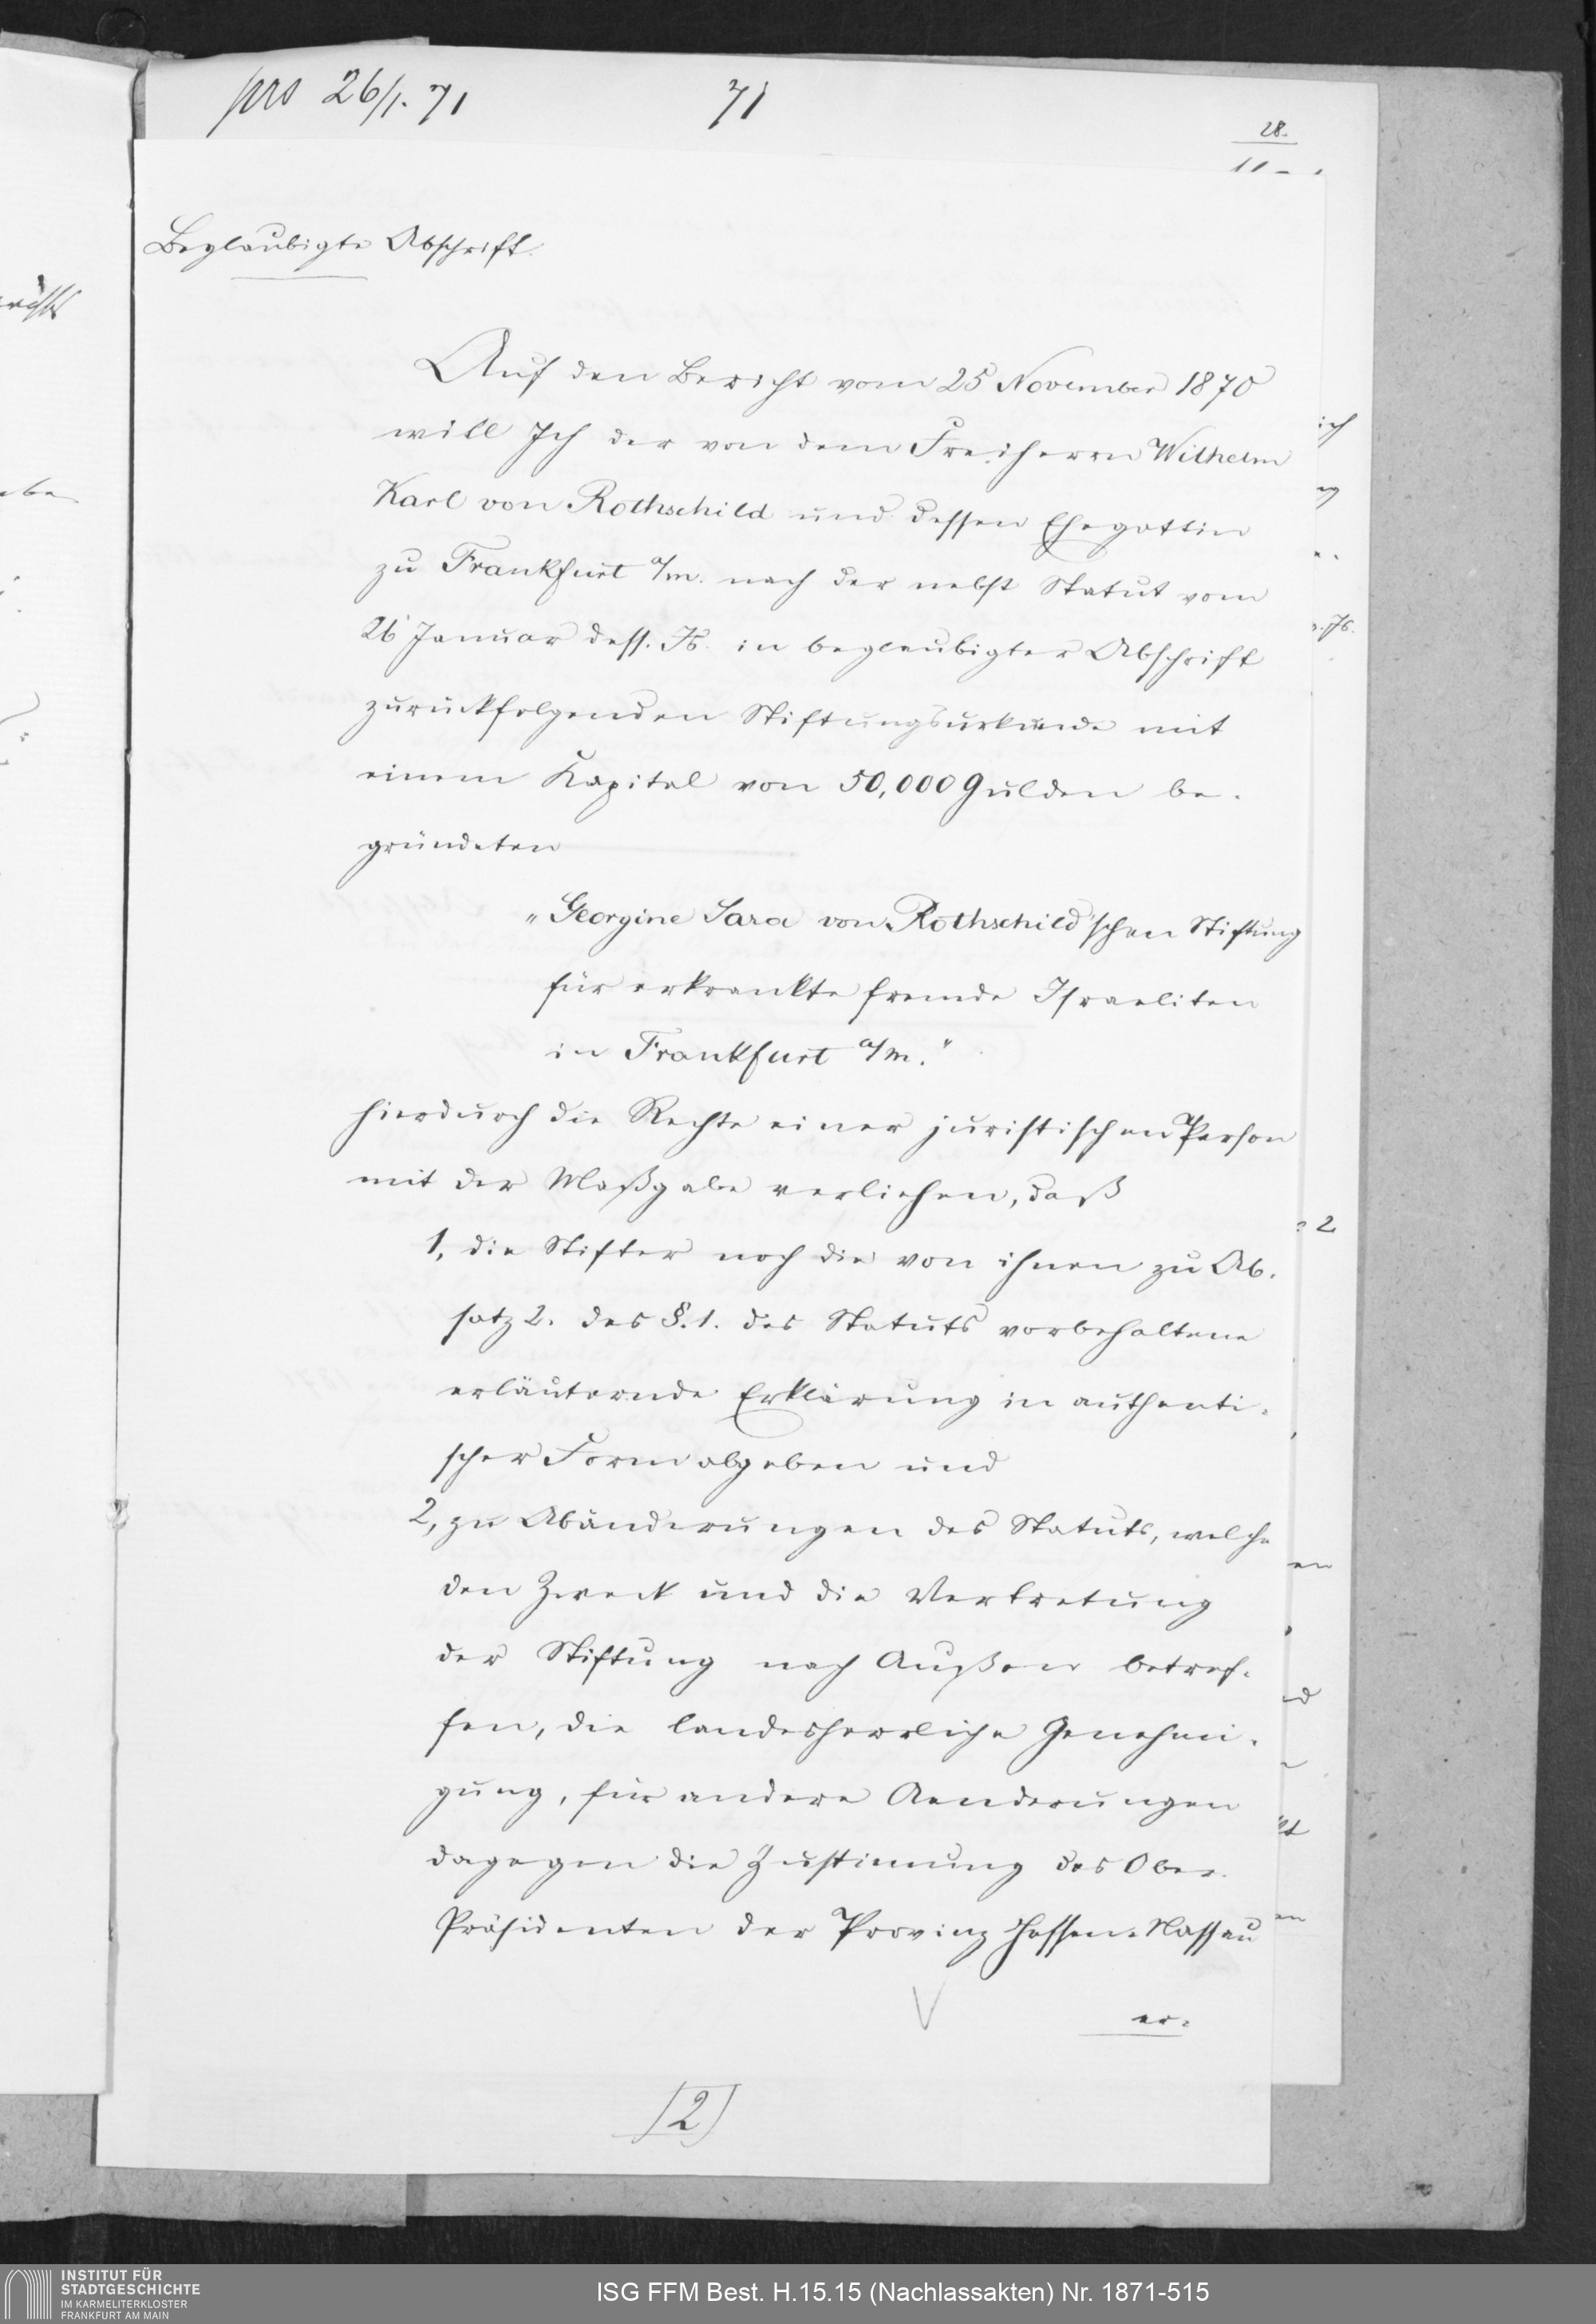 prs 26/1. 71
71
28.
11
Beglaubigte Abschrift.
Auf den Bericht vom 25 November 1870
will Ich der von dem Freiherrn Wilhelm
Karl von Rothschild und dessen Ehegattin
zu Frankfurt a/m. nach der nebst Statut vom
26 Januar dess. Js. in beglaubigter Abschrift
zurückfolgenden Stiftungsurkunde mit
einem Kapital von 50,000 Gulden be-
gründeten
„Georgine Sara von Rothschild'schen Stiftung
für erkrankte fremde Israeliten
in Frankfurt a/m."
hierdurch die Rechte einer juristischen Person
mit der Maßgabe verliehen, daß
1, die Stifter noch die von ihnen zu Ab-
satz 2. des §. 1. des Statuts vorbehaltene
erläuternde Erklärung in authenti-
scher Form abgeben und
2, zu Abänderungen des Statuts, welche
den Zweck und die Vertretung
der Stiftung nach Außen betref-
fen, die landesherrliche Genehmi-
gung, für andere Aenderungen
dagegen die Zustimmung des Ober-
Präsidenten der Provinz Hessen-Nassau
er-
[2]
INSTITUT FÜR
STADTGESCHICHTE
IM KARMELITERKLOSTER
FRANKFURT AM MAIN
ISG FFM Best. H.15.15 (Nachlassakten) Nr. 1871-515